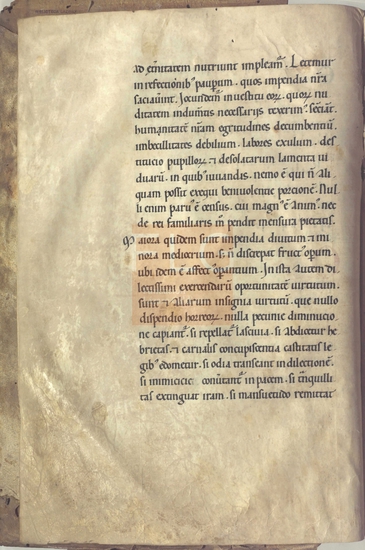 ad etnitatem nutriunt impleam̄. Letemur
in refectionibꝰ pauꝑum. quos impendia nr̄a
saciauint. Iocundem̄ in uestitu eoꝝ. quoꝝ nu
ditatem indumtis necessarijs texerimꝰ. Senciant
humanitatē nr̄am egritudines decumbentiū.
imbecillitates debilium. labores exulum. des
titucio pupilloꝝ. ⁊ desolatarum lamenta ui
duarū. in quibꝰ iuuandis. nemo ē qui n̄ ali
quam possit exequi beniuolentie porcionē. Nul
li enim paruꝰ ē census. cui magnꝰ ē animꝰ. nec
de rei familiaris m̄ pendit mensura pietatis.
Maiora quidem sunt inpendia diuitum. ⁊ mi
nora mediocrium. sȝ n̄ discrepat fructꝰ operum.
ubi idem ē affectꝰ operantium. In ista autem di
lectissimi exercendarū oportunitate uirtutum.
sunt ⁊ aliarum insignia uirtutū. que nullo
dispendio horreoꝝ. nulla pecunie diminucio
ne capiantᷣ. si repellatᷣ lasciuia. si abdicetur he
brietas. ⁊ carnalis concupiscentia castitatis le
gibꝰ edometur. si odia transeant in dilectionē.
si inimicicie conūtantᷣ in pacem. si tⁿquilli
tas extinguat iram. si mansuetudo remittat